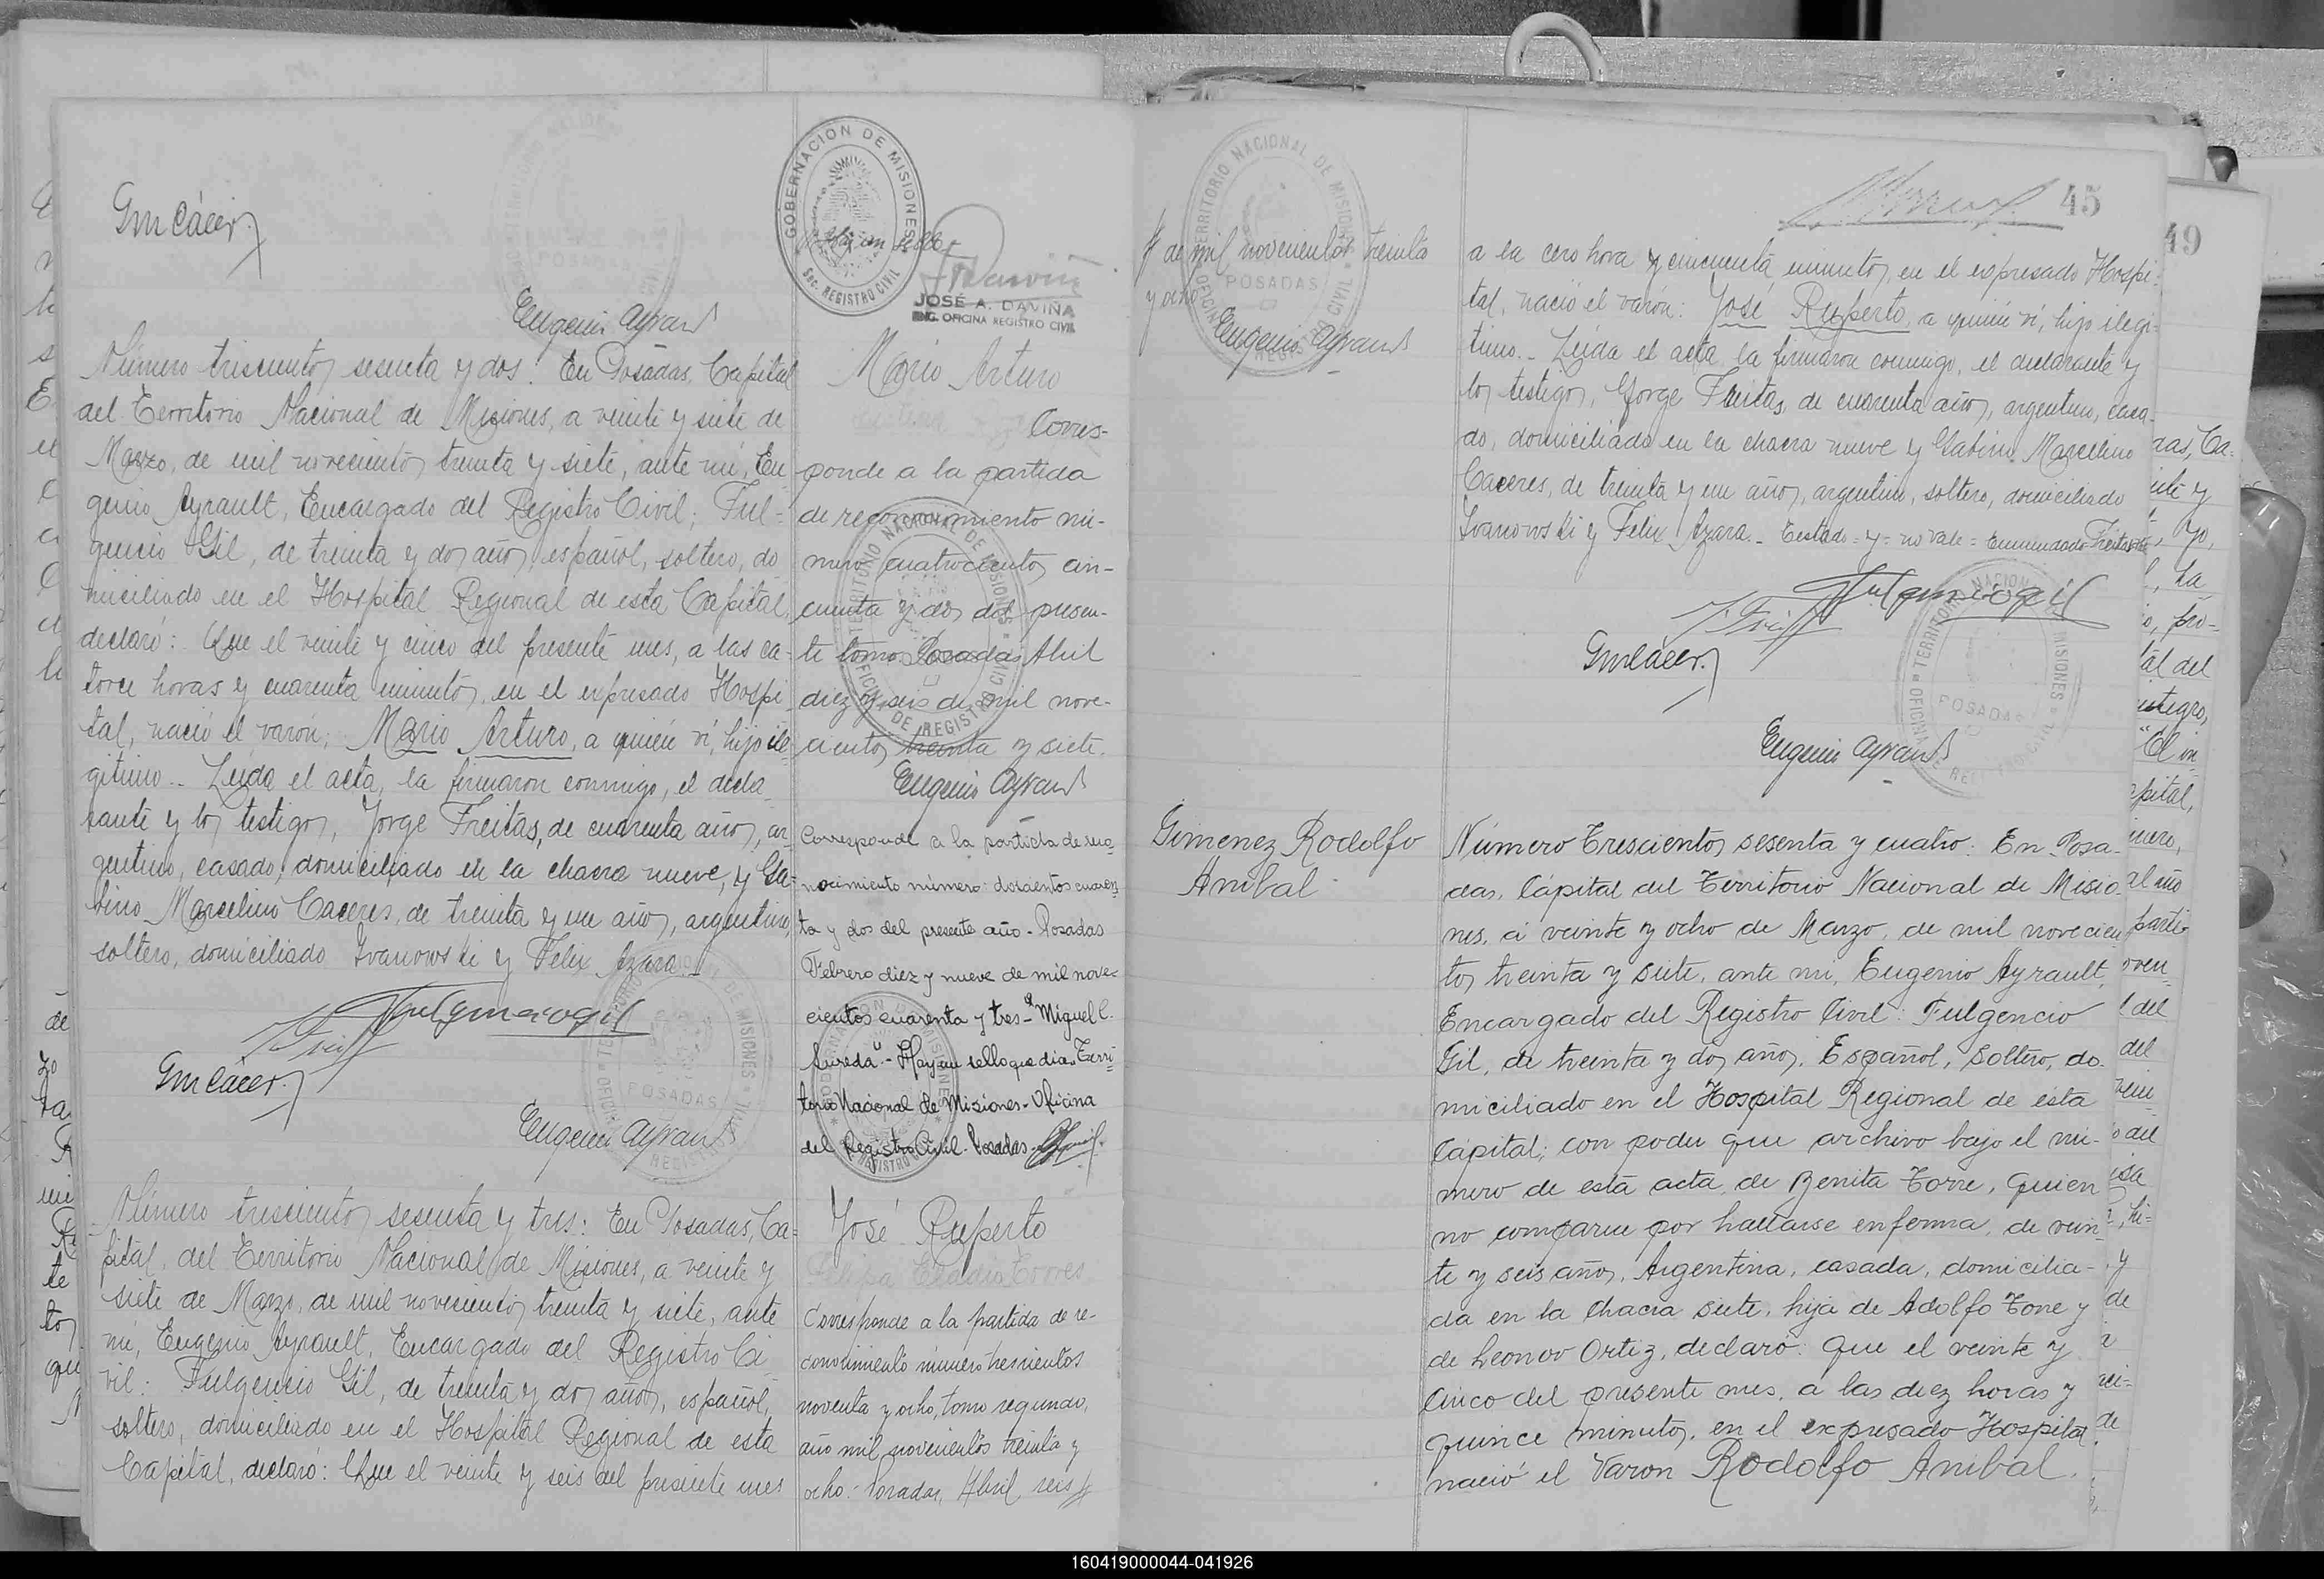 GmCácer
Eugenio Ayrault
Número triscientos sesenta y dos: En Posadas, Capital
del Territorio Nacional de Misiones, a veinte y siete de
Marzo, de mil novecientos treinta y siete, ante mí, Eu-
genio Ayrault, Encargado del Registro Civil; Ful-
gencio Gil, de treinta y dos años, español, soltero, do
miciliado en el Hospital Regional de esta Capital,
declaró: Que el veinte y cinco del presente mes, a las ca-
torce horas y cuarenta minutos, en el expresado Hospi
tal, nació el varón; Mario Arturo, a quién ví, hijo ile-
gitimo.- Leída el acta, la firmaron conmigo, el decla-
rante y los testigos, Jorge Freitas, de cuarenta años, ar-
gentino, casado, domiciliado en la chacra nueve, y Ga-
bino Marcelino Caceres, de treinta y un años, argentino,
soltero, domiciliado Ivanowski y Felix Azara.-
Fulgencio Gil
GmCácer.
Eugenio Ayrault
Número trescientos sesenta y tres: En Posadas, Ca-
pital, del Territorio Nacional de Misiones, a veinte y
siete de Marzo, de mil novecientos treinta y siete, ante
mí, Eugenio Ayrault, Encargado del Registro Ci
vil: Fulgencio Gil, de treinta y dos años, español,
soltero, domiciliado en el Hospital Regional de esta
Capital, declaró: Que el veinte y seis del presente mes
GOBERNACION DE MISIONES
Sec. REGISTRO CIVIL
Hay un sello
JOSÉ A. DAVIÑA
ENC. OFICINA REGISTRO CIVIL
Mario Arturo
Corres-
ponde a la partida
de reconocimiento nú-
mero cuatrocientos cin-
cuenta y dos del presen-
te tomo. Posadas Abril
diez y seis de mil nove-
cientos treinta y siete.
Eugenio Ayrault
Corresponde a la partida de reco-
nocimiento número: doscientos cuaren
ta y dos del presente año - Posadas
Febrero diez y nueve de mil nove-
cientos cuarenta y tres - "Miguel C.
Sureda" - Hay un sello que dia "Terri-
torio Nacional de Misiones - Oficina
del Registro Civil. Posadas.
José Ruperto
Corresponde a la partida de re-
conocimiento número trescientos
noventa y ocho, tomo segundo,
año mil novecientos treinta y
ocho.- Posadas, Abril seis
TERRITORIO NACIONAL DE MISIONES
OFICINA DE REGISTRO CIVIL
POSADAS
de mil novecientos treinta
y ocho
Eugenio Ayrault
45
49
a la cero hora y cincuenta minutos, en el expresado Hospi-
tal, nació el varón: José Ruperto, a quién ví, hijo ilegi-
timo.- Leída el acta, la firmaron conmigo, el declarante y
los testigos, Jorge Freitas, de cuarenta años, argentino, casa-
do, domiciliado en la chacra nueve y Gabino Marcelino
Caceres, de treinta y un años, argentino, soltero, domiciliado
Ivanowski y Felix Azara.- Testado = y = no vale = Enmendado Freitas
Fulgencio Gil
GmCácer.
Eugenio Ayrault
Gimenez Rodolfo
Anibal
Número Trescientos sesenta y cuatro: En Posa-
das, Cápital del Territorio Nacional de Misio-
nes, a veinte y ocho de Marzo, de mil novecien
tos treinta y siete, ante mi, Eugenio Ayrault,
Encargado del Registro Civil: Fulgencio
Gil, de treinta y dos años, Español, Soltero, do-
miciliado en el Hospital Regional de esta
Cápital; con poder que archivo bajo el nú-
mero de esta acta, de Benita Torre, quien
no comparece por hallarse enferma, de vein-
te y seis años, Argentina, casada, domicilia-
da en la Chacra siete, hija de Adolfo Torre y
de Leonor Ortiz, declaró: que el veinte y
cinco del presente mes, a las diez horas y
quince minutos, en el expresado Hospital
nació el Varon Rodolfo Anibal.
160419000044-041926